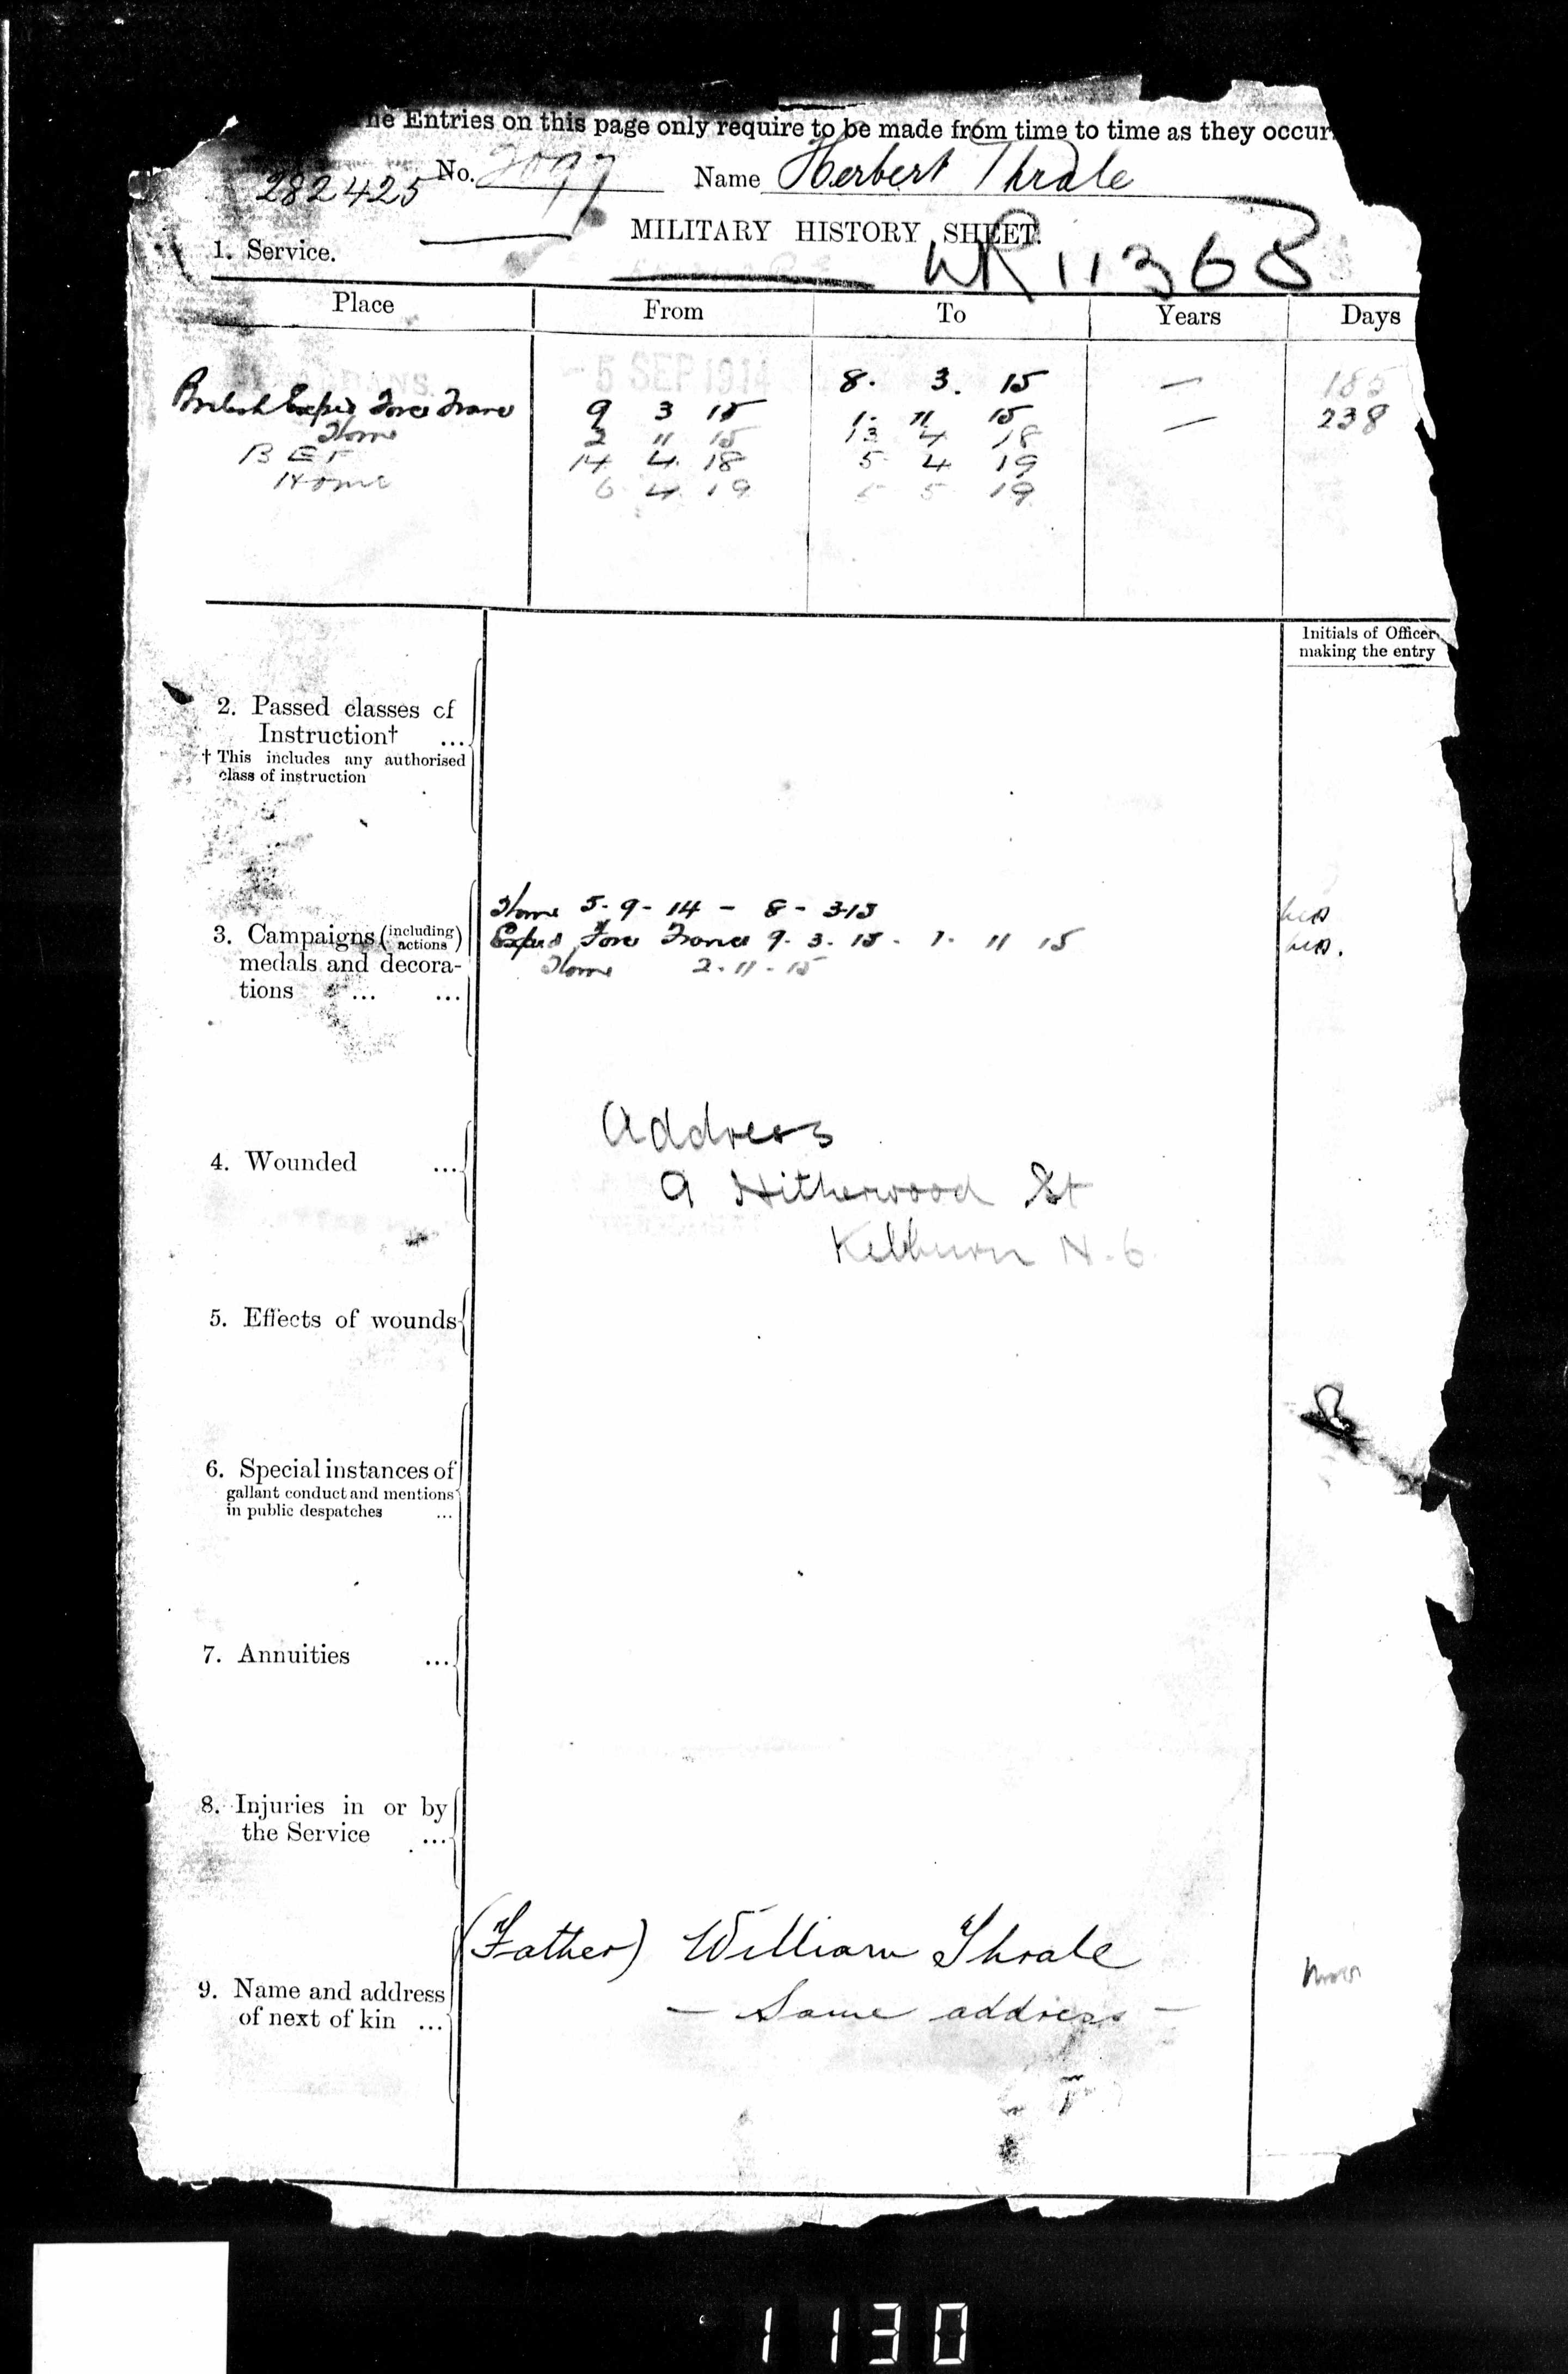 he Entries on this page only require to be made from time to time as they occur.
282425 No. 2097 Name Herbert Thrale
MILITARY HISTORY SHEET.
1. Service.
WR 11368
Place From To Years Days
- 5 SEP 1914 8. 3. 15 — 185
British Exped Force France 9 3 15 1. 11 15 — 238
Home 2 11 15 13 4 18
B E F 14 4 18 5 4 19
Home 6 4 19 5 19
Initials of Officer
making the entry
2. Passed classes of
Instruction† ...
† This includes any authorised
class of instruction
Home 5-9-14 - 8-3-15
3. Campaigns (including actions) Exped Force France 9. 3. 15 - 1. 11 15
medals and decora- Home 2-11-15
tions ... ...
Address
4. Wounded ...
9 Hitherwood St
Kilburn N.6
5. Effects of wounds
6. Special instances of
gallant conduct and mentions
in public despatches ...
7. Annuities ...
8. Injuries in or by
the Service ...
(Father) William Thrale
9. Name and address
of next of kin ... — Same address —
1130